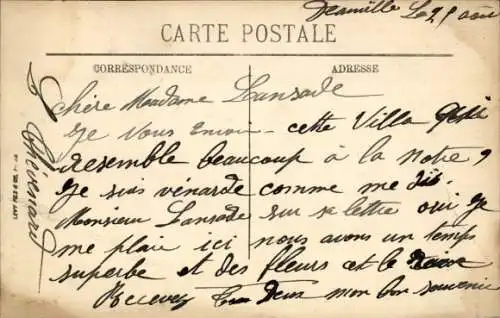 Deauville Le 25 août
CARTE POSTALE
CORRESPONDANCE
ADRESSE
chère Madame Lansade
Je Vous Envoi cette Villa qui
resemble beaucoup à la notre
Je suis vénarde comme me dit
Monsieur Lansade sur se lettre oui je
me plaie ici nous avons un temps
superbe et des fleurs et le
Recevez Tous Deux mon bon souvenir
Thévenard